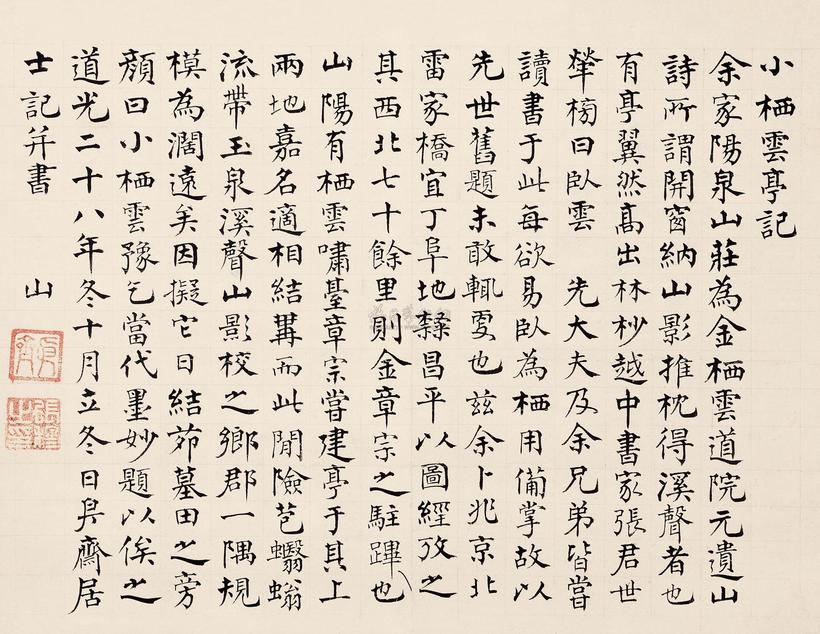 小栖雲亭記
余家陽泉山莊為金栖雲道院元遺山
詩所謂開窗納山影推枕得溪聲者也
有亭翼然髙出林杪越中書家張君世
犖榜曰臥雲 先大夫及余兄弟皆嘗
讀書于此每欲易臥為栖用備掌故以
先世舊題未敢輒更也兹余卜兆京北
雷家橋宜丁阜地隸昌平以圖經攷之
其西北七十餘里則金章宗之駐蹕也
山陽有栖雲嘯臺章宗嘗建亭于其上
兩地嘉名適相結冓而此間險芭蠮螉
流帶玉泉溪聲山影校之鄉郡一隅規
模為濶遠矣因擬它日結茆墓田之旁
顏曰小栖雲豫乞當代墨妙題以俟之
道光二十八年冬十月立冬日㒷齋居
士記并書 山